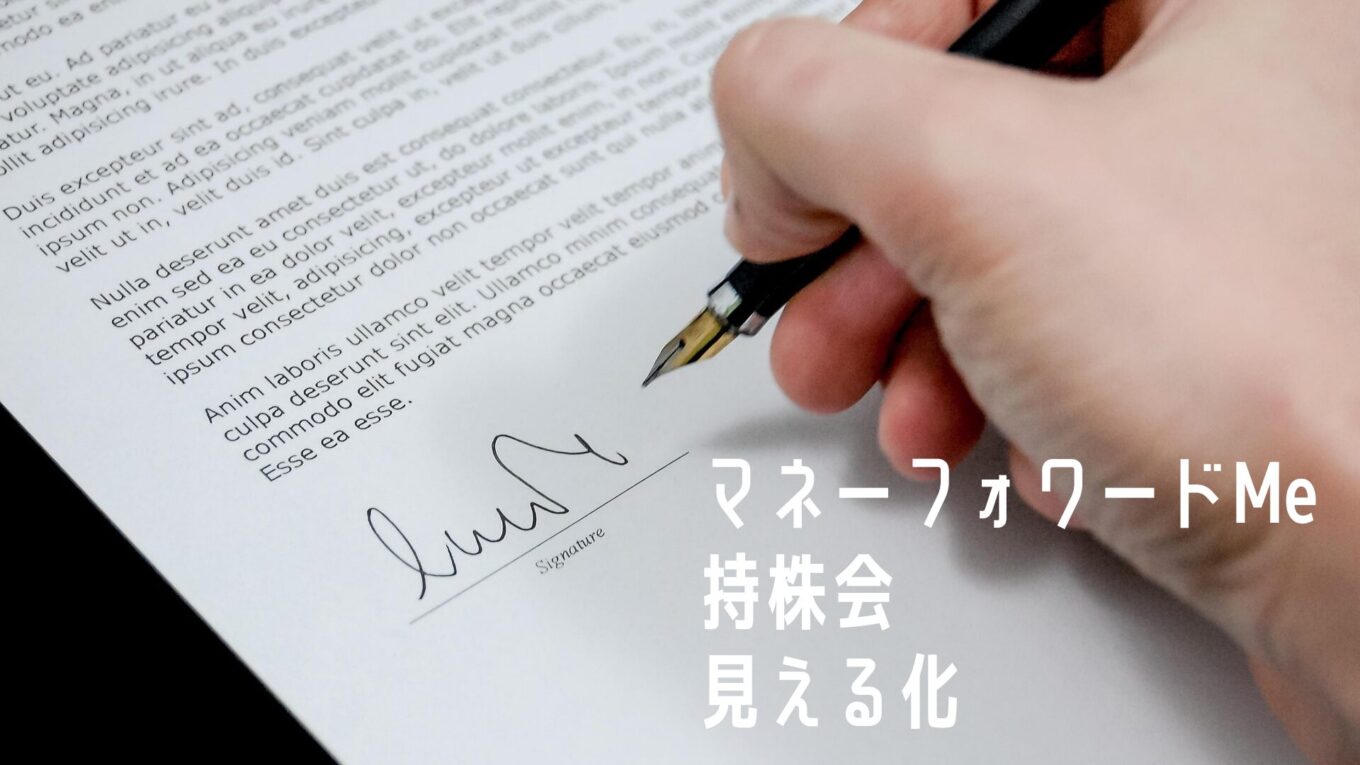 ut eu. Ad pariatur eu
voluptate adipisicing aliquip
atur. Magna, in ut aliqua eu irure
ollit adipisicing irure. In duis excepteur
Duis excepteur sint ad, consequat velit ut
incididunt et ad ea occaecat cupidatat do.
ipsum non. Adipisicing veniam mollit cupidatat
velit ut in, velit duis id. Sint culpa in, velit ut duis
Nulla deserunt amet duis est consequat consectetur,
enim sed ea eu consectetur ut, do dolore laboris
pariatur in ea dolor velit, excepteur mollit enim, in non.
tempor velit, adipisicing, excepteur ut excepteur tempor
ipsum consectetur dolor non occaecat sunt qui nulla
Anim laboris ullamco velit tempor velit tempor
culpa deserunt sint elit. Ullamco minim consequat
commodo elit fugiat magna occaecat eiusmod
Esse ea esse.
Signature
マネーフォワードMe
持株会
見える化